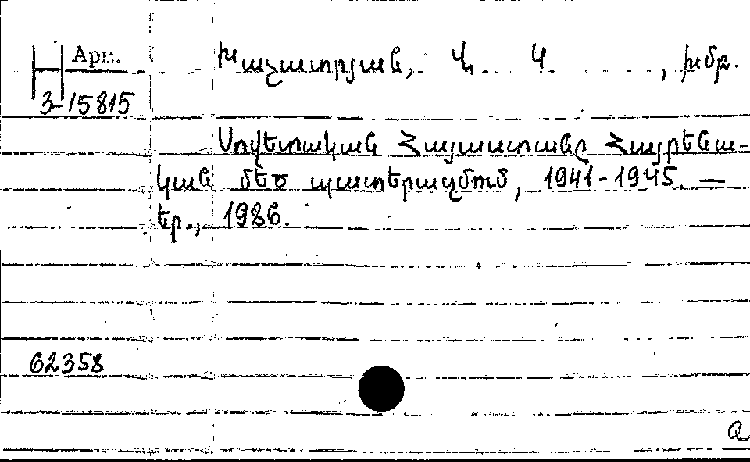 Арм.
3-15815
Խաչատրյան, Վ. Կ., խմբ.
Սովետական Հայաստանը Հայրենա-
կան մեծ պատերազմում, 1941-1945. —
Եր., 1986.
62358